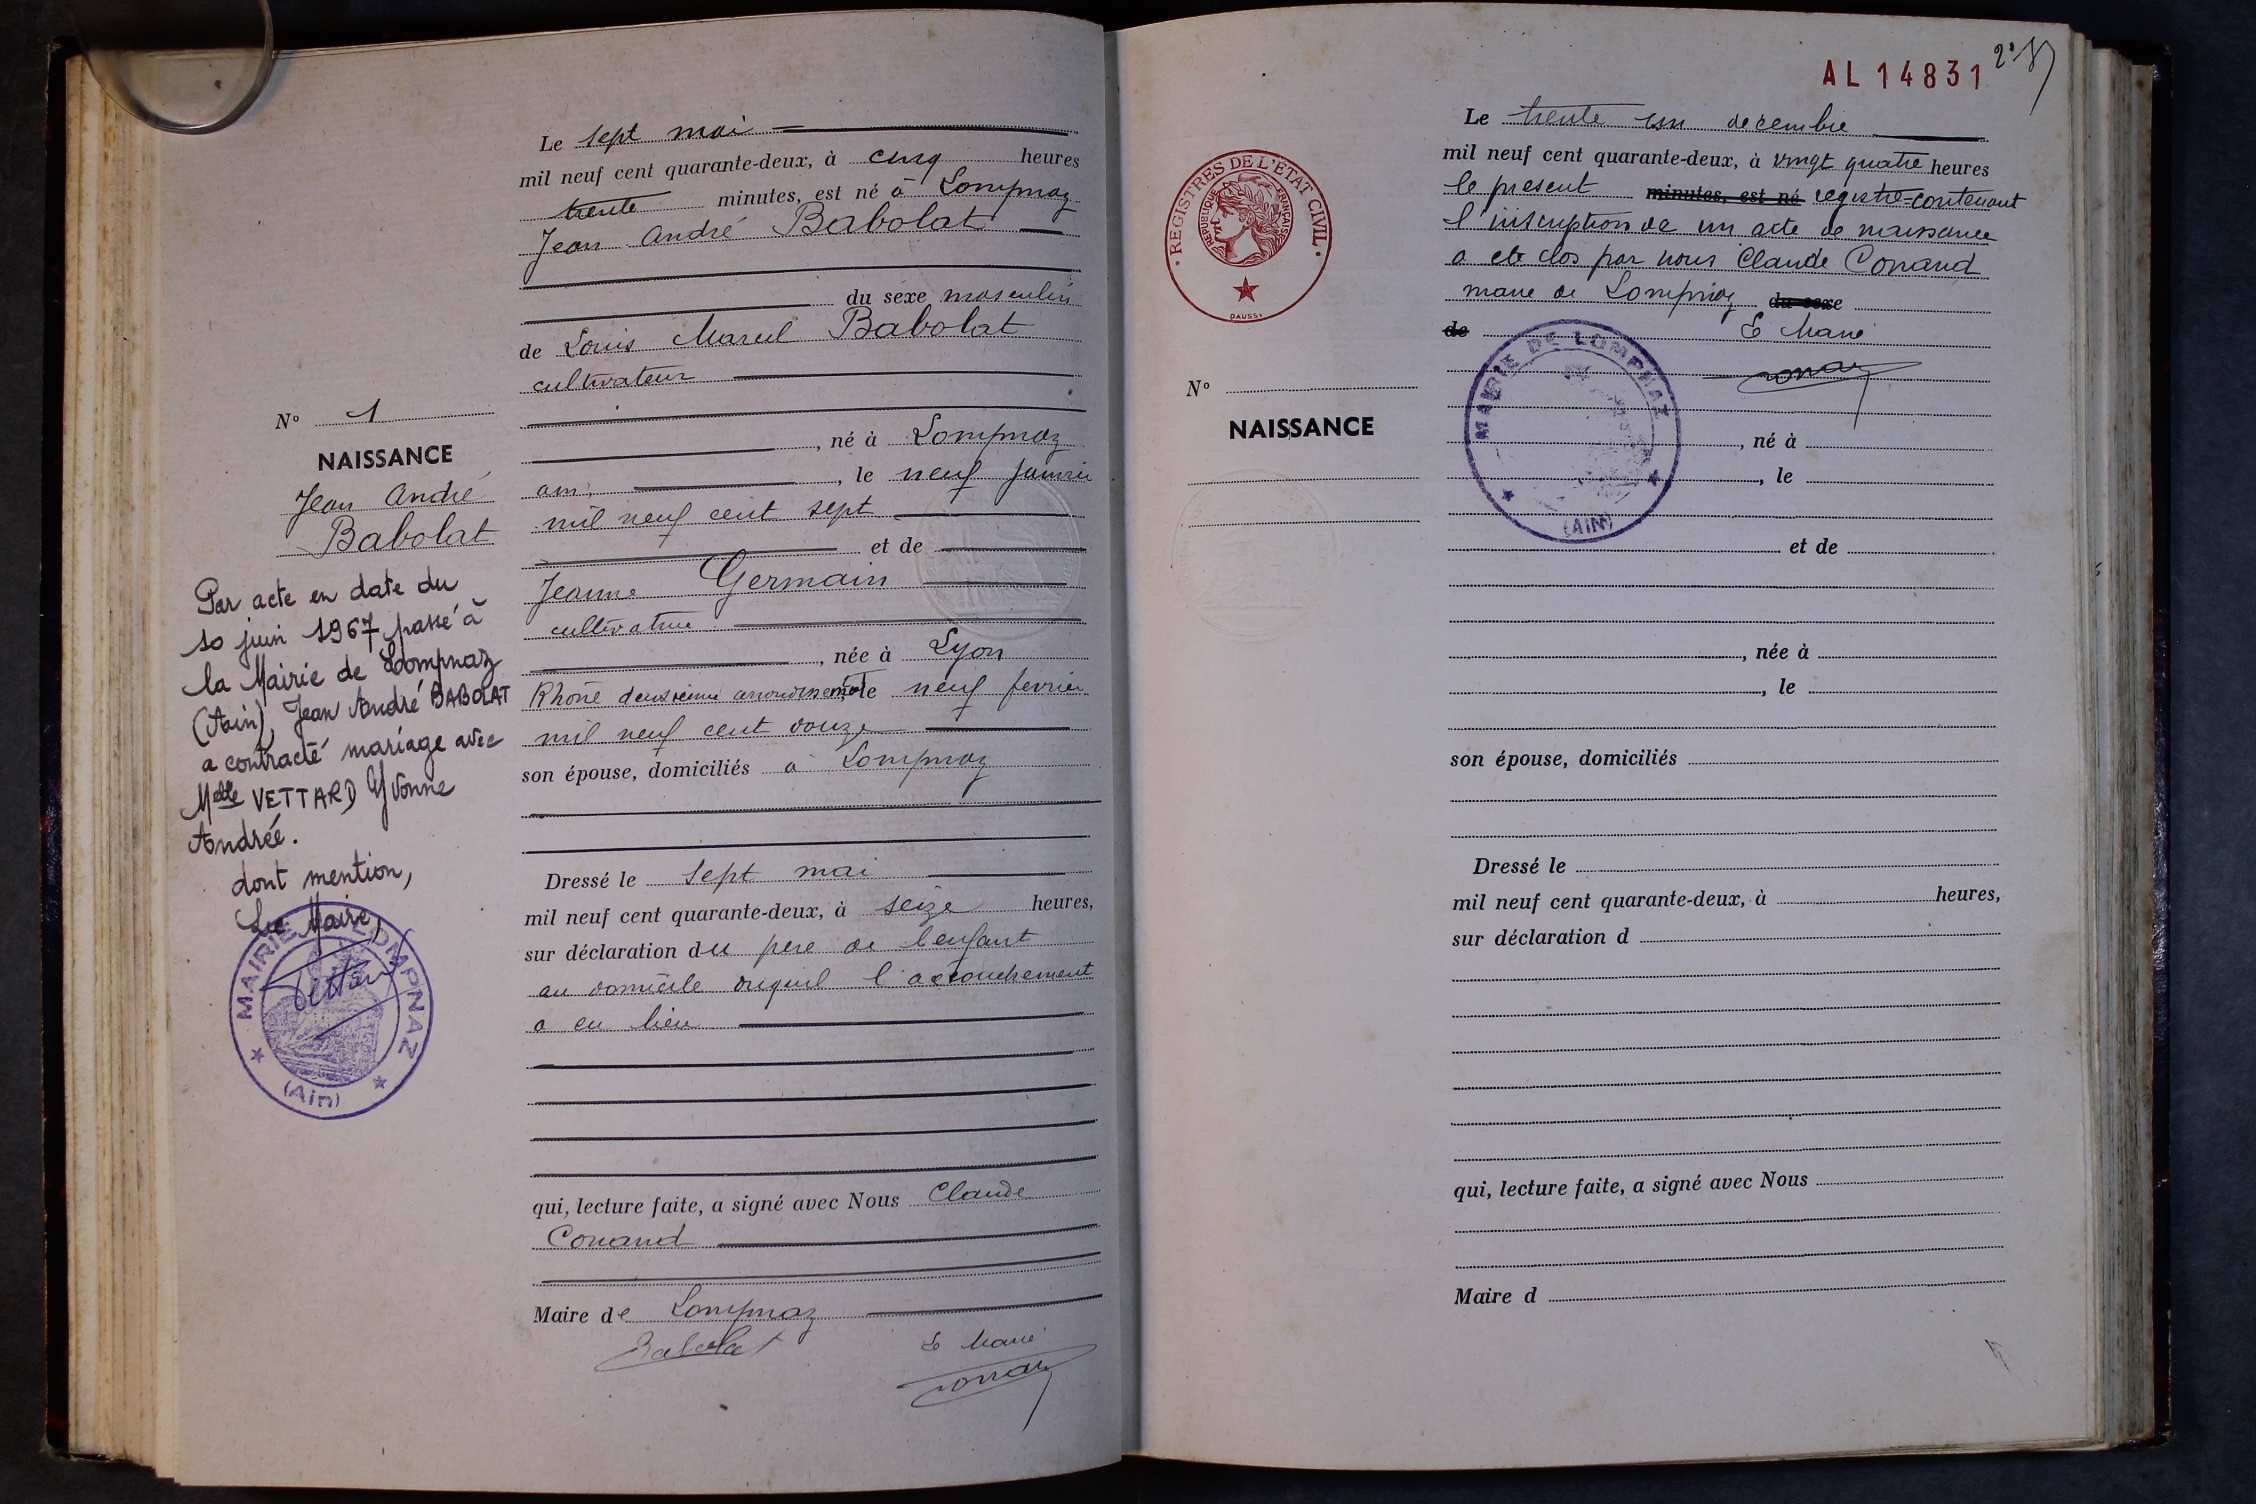 Le sept mai
mil neuf cent quarante-deux, à cinq heures
trente minutes, est né à Lompnaz
Jean André Babolat
du sexe masculin
de Louis Marcel Babolat
cultivateur
, né à Lompnaz
ain, , le neuf Janvier
mil neuf cent sept
et de
Jeanne Germain
cultivatrice
, née à Lyon
Rhône deuxième arrondissement, le neuf fevrier
mil neuf cent douze
son épouse, domiciliés à Lompnaz
Dressé le sept mai
mil neuf cent quarante-deux, à seize heures,
sur déclaration du pere de l'enfant
au domicile duquel l'accouchement
a eu lieu
qui, lecture faite, a signé avec Nous Claude
Conand
Maire de Lompnaz
Babolat
Le Maire
Conand
N° 1
NAISSANCE
Jean André
Babolat
Par acte en date du
10 juin 1967 passé à
la Mairie de Lompnaz
(Ain), Jean André BABOLAT
a contracté mariage avec
Melle VETTARD Yvonne
Andrée.
dont mention,
Le Maire,
Vettard
MAIRIE DE LOMPNAZ
(Ain)
AL 14831
REGISTRES DE L'ÉTAT CIVIL
REPUBLIQUE FRANÇAISE
Le trente un decembre
mil neuf cent quarante-deux, à vingt quatre heures
le present minutes, est né registre contenant
l'inscription de un acte de naissance
a ete clos par nous Claude Conand
maire de Lompnaz du sexe
de Le Maire
Conand
MAIRIE DE LOMPNAZ
(AIN)
N°
NAISSANCE
, né à
, le
et de
, née à
, le
son épouse, domiciliés
Dressé le
mil neuf cent quarante-deux, à heures,
sur déclaration d
qui, lecture faite, a signé avec Nous
Maire d